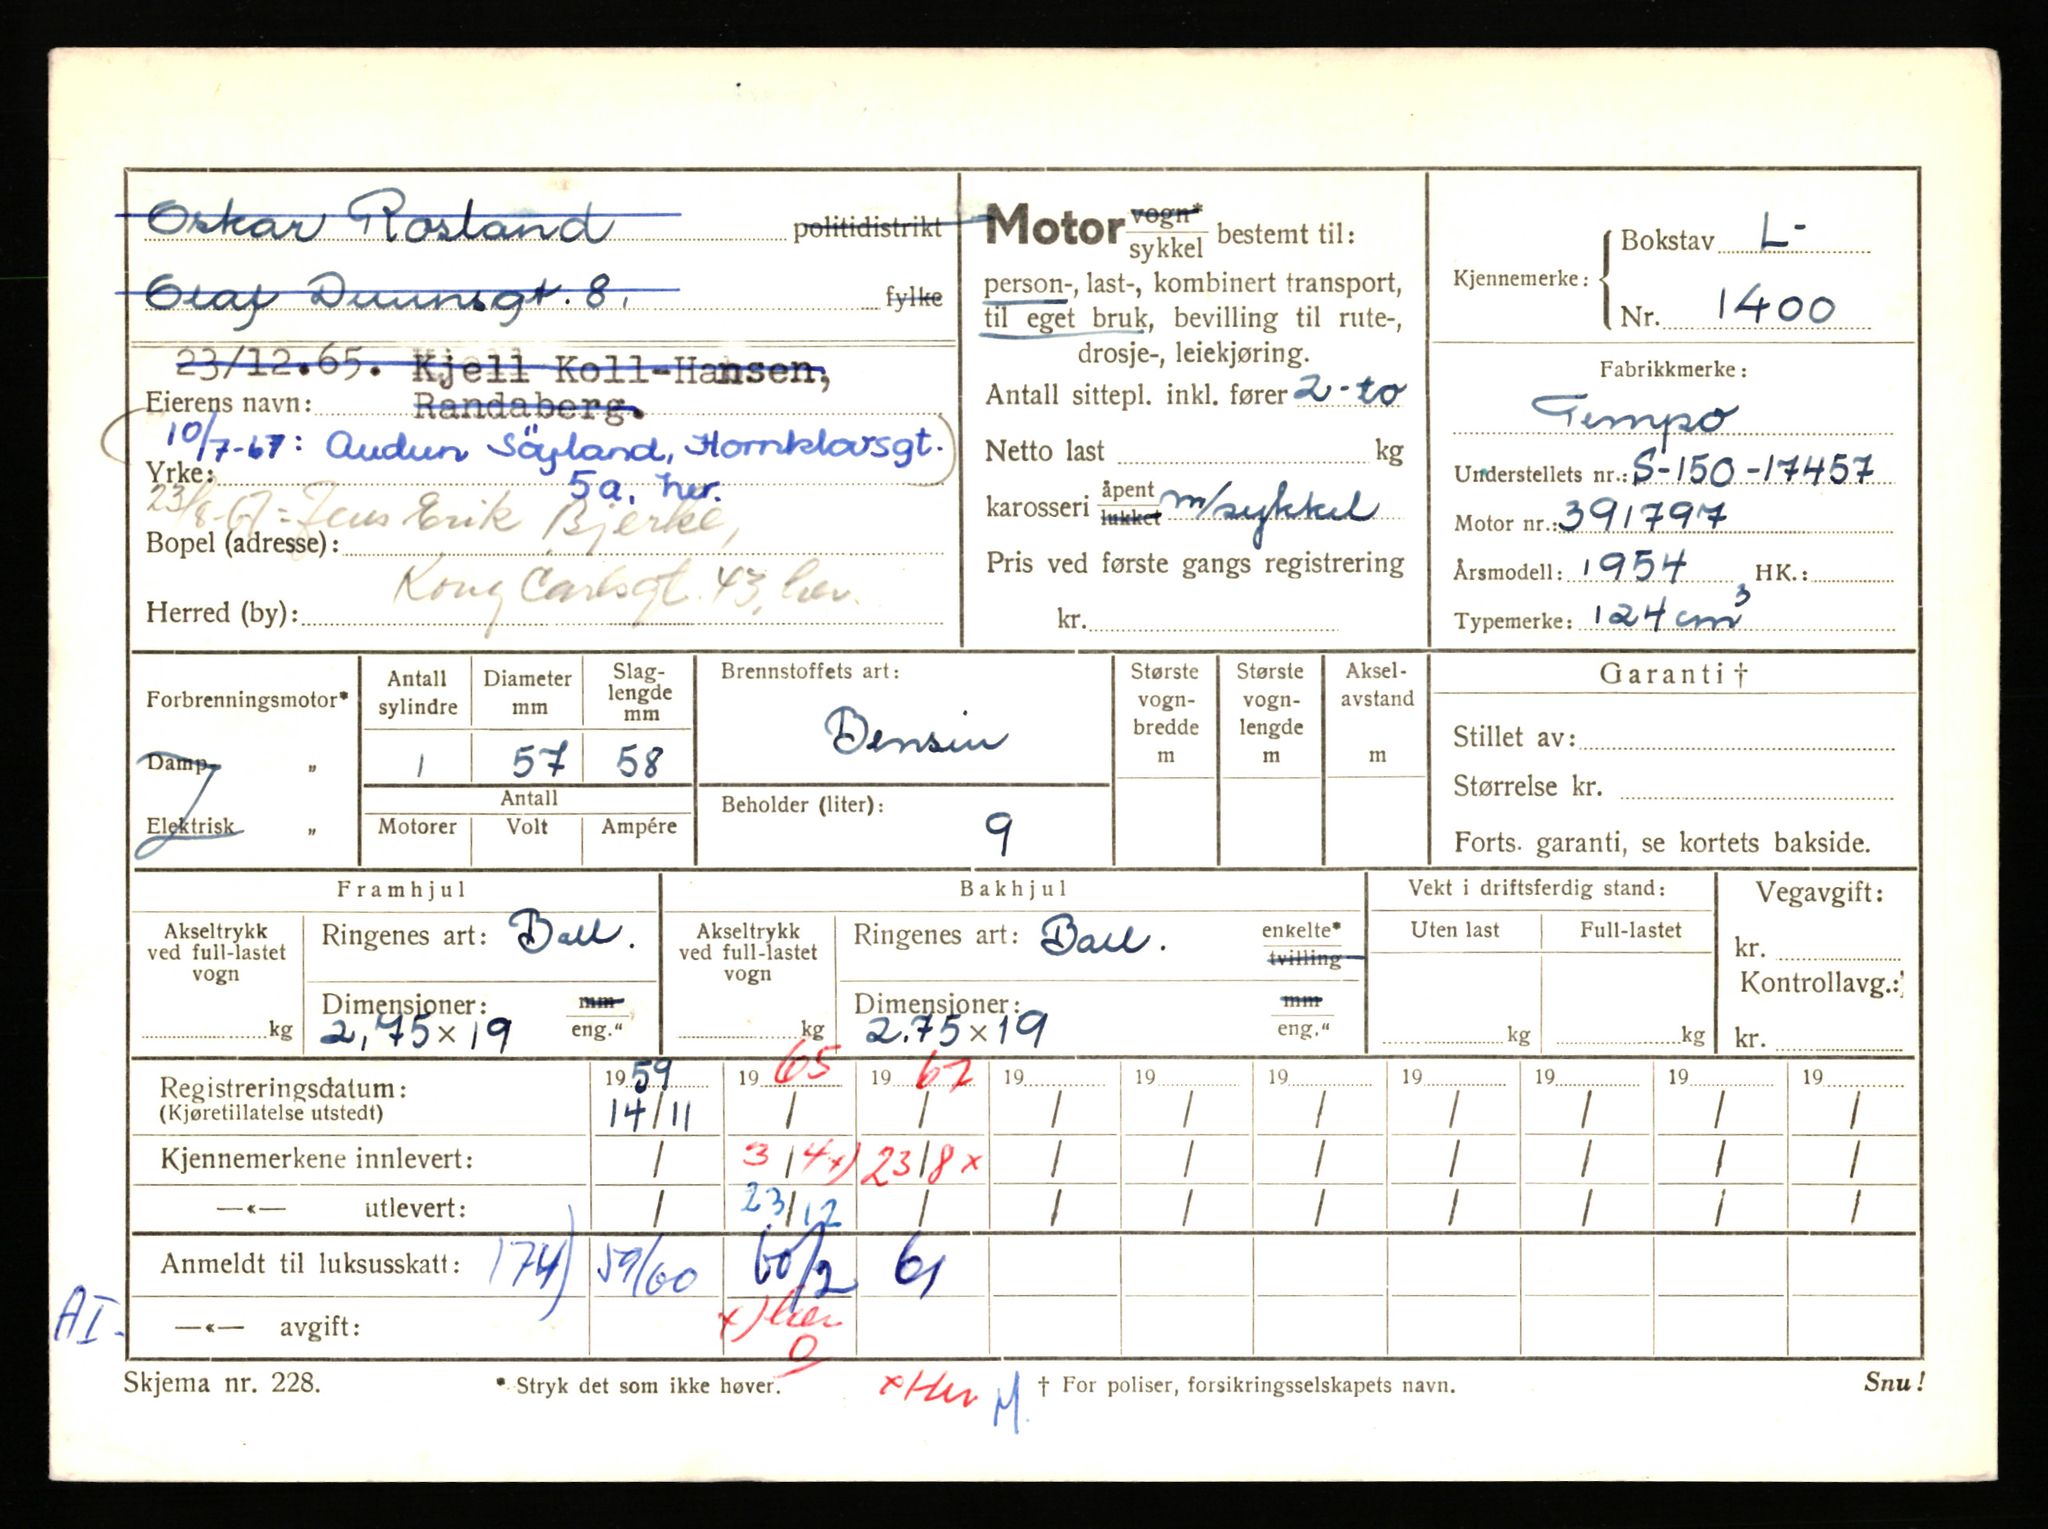 Oskar Rosland politidistrikt
Olaf Duunsgt. 8. fylke
23/12.65. Kjell Koll-Hansen,
Eierens navn: Randaberg.
10/7-67: Audun Söyland, Hornklovsgt.
Yrke: 5a, her.
23/8-67= Jens Erik Bjerke,
Bopel (adresse):
Kong Carlsgt. 43, her.
Herred (by):
Motor vogn* sykkel bestemt til:
person-, last-, kombinert transport,
til eget bruk, bevilling til rute-,
drosje-, leiekjøring.
Antall sittepl. inkl. fører 2-to
Netto last kg
karosseri åpent lukket m/sykkel
Pris ved første gangs registrering
kr.
Kjennemerke: Bokstav L-
Nr. 1400
Fabrikkmerke:
Tempo
Understellets nr.: S-150-17457
Motor nr.: 391797
Årsmodell: 1954 HK.:
Typemerke: 124 cm³
Forbrenningsmotor*
Damp- „
Elektrisk „
Antall sylindre
Diameter mm
Slag- lengde mm
1 57 58
Antall
Motorer Volt Ampére
Brennstoffets art:
Bensin
Beholder (liter):
9
Største vogn- bredde m
Største vogn- lengde m
Aksel- avstand m
Garanti †
Stillet av:
Størrelse kr.
Forts. garanti, se kortets bakside.
Framhjul
Akseltrykk ved full-lastet vogn
kg
Ringenes art: Ball.
Dimensjoner: mm
2,75 x 19 eng."
Bakhjul
Akseltrykk ved full-lastet vogn
kg
Ringenes art: Ball. enkelte* tvilling
Dimensjoner: mm
2.75 x 19 eng."
Vekt i driftsferdig stand:
Uten last Full-lastet
kg kg
Vegavgift:
kr.
Kontrollavg.:
kr.
Registreringsdatum: 1959 1965 1967 19 19 19 19 19 19 19
(Kjøretillatelse utstedt) 14/11 / / / / / / / / /
Kjennemerkene innlevert: / 3/4x) 23/8x / / / / / / /
—«— utlevert: / 23/12 / / / / / / / /
Anmeldt til luksusskatt: 174) 59/60 60/2 61
AI-
—«— avgift: x) her
Skjema nr. 228.
* Stryk det som ikke høver.
x Her
M.
† For poliser, forsikringsselskapets navn.
Snu!